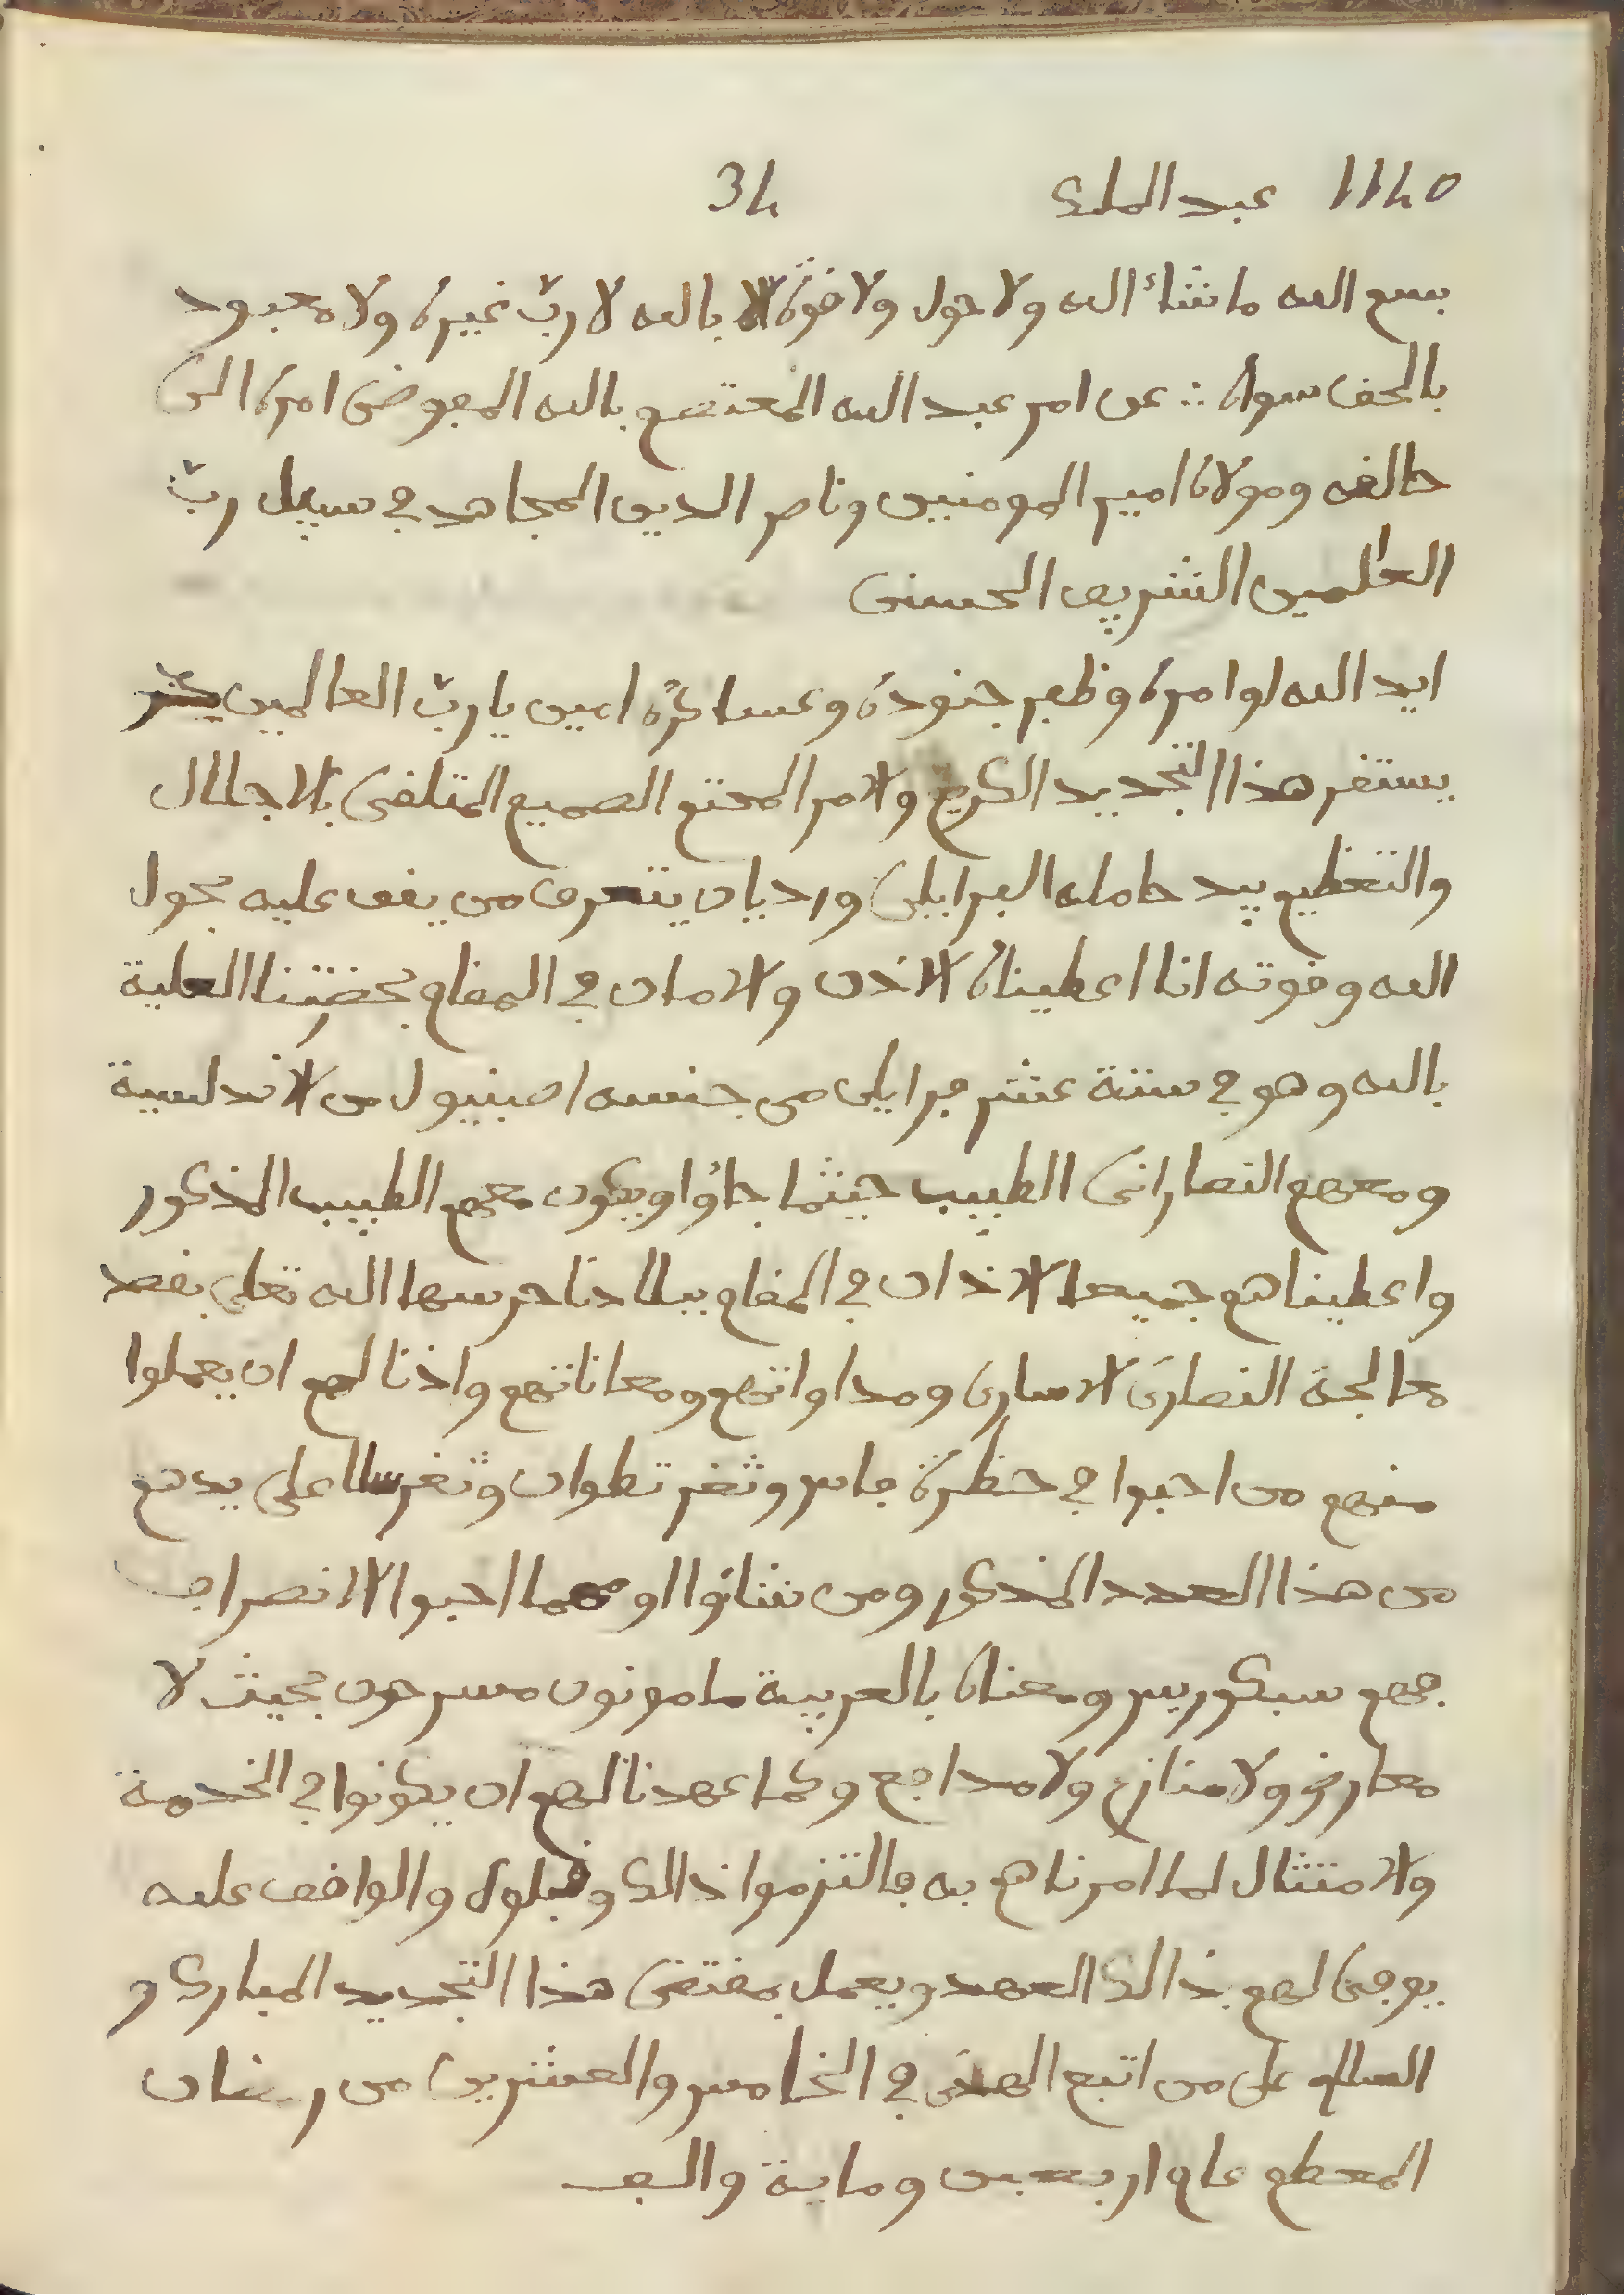 1140 عبد الملك 34
بسم الله ما شاء الله ولا حول ولا قوة الا بالله لا رب غيره ولا معبود
بالحق سواه ؞ عن امر عبد الله المعتصم بالله المفوض امره الى
خالقه ومولاه امير المومنين وناصر الدين المجاهد في سبيل رب
العلمين الشريف الحسنى
ايد الله اوامره وظفر جنوده وعساكره امين يا رب العالمين
يستقر هذا التجديد الكريم والامر المحتم الصميم المتلقى بالاجلال
والتعظيم بيد حامله البرايلى ورديان يتعرف من يقف عليه بحول
الله وقوته انا اعطيناه الاذن والامان في المقام بحضرتنا العلية
بالله وهو في ستة عشر فرايلى من جنسه اصبنيول من الاندلسية
ومعهم النصارانى الطبيب حيثما جاؤا ويكون معهم الطبيب المذكور
واعطيناهم جميعا الاذان في المقام ببلادنا حرسها الله تعلى بقصد
معالجة النصارى الاسارى ومداواتهم ومعاناتهم واذنا لهم ان يعملوا
منهم من احبوا في حظرة فاس وثغر تطوان وثغر سلا على يدهم
من هذا العدد المذكور ومن شاؤا او مهما احبوا الانصراف
فهم سيكوريس ومعناه بالعربية مامونون مسرحون بحيث لا
معارض ولا منازع ولا مدافع وكما عهدنا لهم ان يكونوا في الخدمة
والامتثال لما امرناهم به فالتزموا ذالك وقبلوه والواقف عليه
يوفى لهم بذالك العهد ويعمل بمقتضى هذا التجديد المبارك و
السلام على من اتبع الهدى في الخامس والعشرين من رمضان
المعظم عام اربعين وماية والف